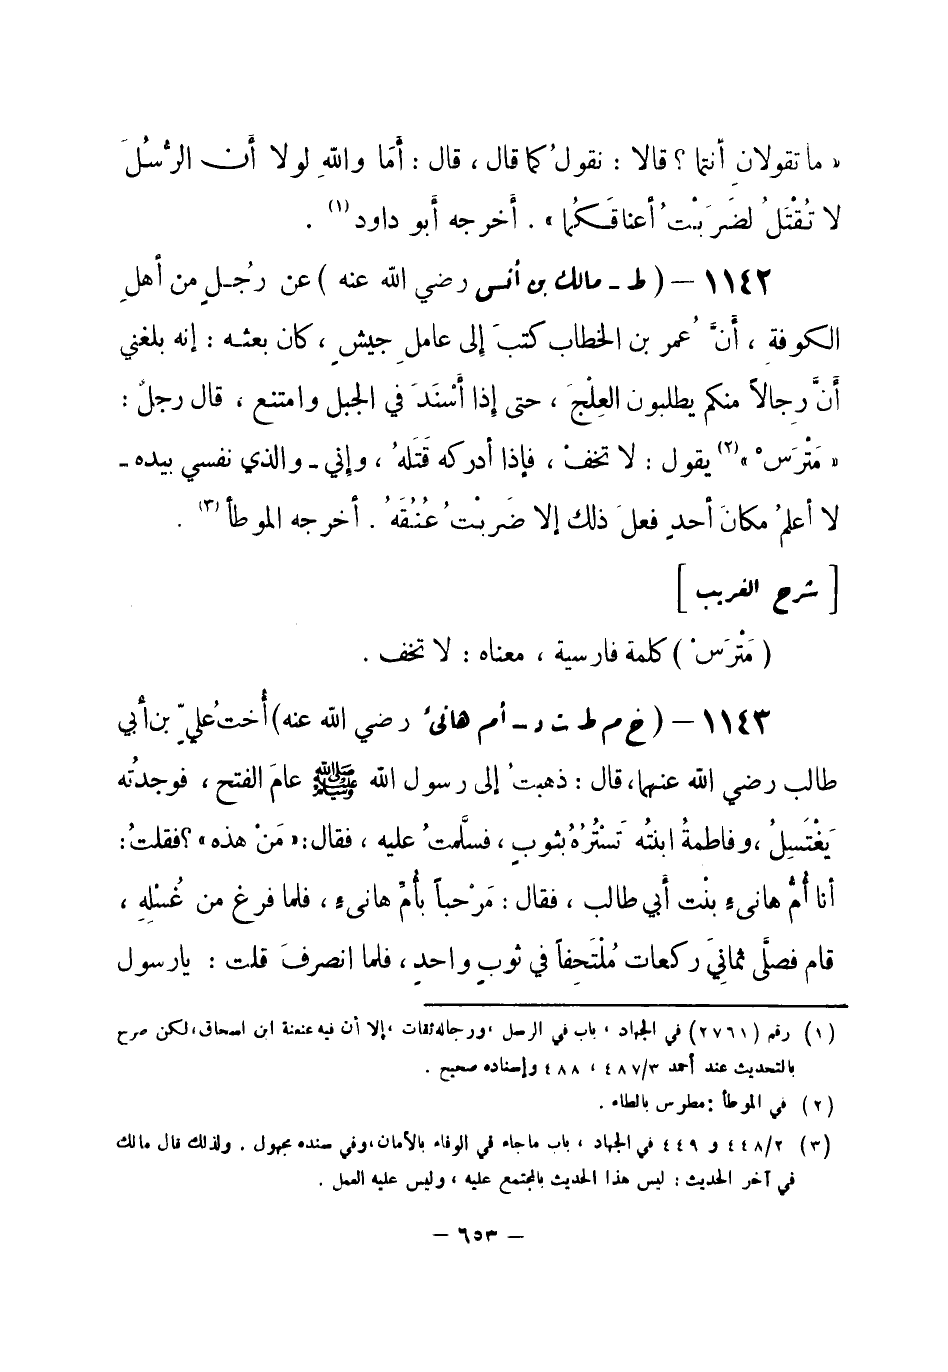 « ما تقولان أنتما ؟ قالا : نقولُ كما قال ، قال : أَمَا واللهِ لولا أَن الرُّسُلَ
لا تُقْتَلُ لضَرَبْتُ أعناقَكُما » . أخرجه أبو داود (١) .
١١٤٢ – ( ط ـ مالك بن أنس رضي الله عنه ) عن رجُلٍ من أهلِ
الكوفةِ ، أَنَّ عُمر بن الخطاب كتبَ إلى عاملِ جيشٍ ، كان بعثه : إنه بلغني
أَنَّ رِجالاً منكم يطلبون العِلْجَ ، حتى إذا أَسْنَدَ في الجبل وامتنع ، قال رجلٌ :
« مَتْرَسْ » (٢) يقول : لا تخفْ ، فإذا أدركه قَتَلهُ ، وإني ـ والذي نفسي بيده ـ
لا أعلمُ مكانَ أحدٍ فعلَ ذلك إلا ضَربْتُ عُنُقَهُ . أخرجه الموطأ (٣) .
[ شرح الغريب ]
( مَتْرَسْ ) كلمة فارسية ، معناه : لا تخف .
١١٤٣ – ( خ م ط ت د ـ أم هانئ رضي الله عنه ) أُختُ عليِّ بن أبي
طالب رضي الله عنهما، قال : ذهبتُ إلى رسول الله ﷺ عامَ الفتح ، فوجدتُه
يَغْتَسِلُ ، وفاطمةُ ابنتُه تَسْتُرُهُ بثوبٍ ، فسلَّمتُ عليه ، فقال : « مَنْ هذه » ؟ فقلتُ :
أنا أُمُّ هانىءٍ بنْت أَبي طالب ، فقال : مَرْحباً بأُمِّ هانىءٍ ، فلما فرغ من غُسْلِهِ ،
قام فصلَّى ثمانيَ ركعات مُلْتَحِفاً في ثوبٍ واحدٍ ، فلما انصرفَ قلت : يارسول
(١) رقم (٢٧٦١) في الجهاد ، باب في الرسل ، ورجاله ثقات ، إلا أن فيه عنعنة ابن اسحاق ، لكن صرح
بالتحديث عند أحمد ٤٨٧/٣ ، ٤٨٨ وإسناده صحيح .
(٢) في الموطأ : مطرس بالطاء .
(٣) ٤٤٨/٢ و ٤٤٩ في الجهاد ، باب ما جاء في الوفاء بالأمان ، وفي سنده مجهول . ولذلك قال مالك
في آخر الحديث : ليس هذا الحديث بالمجتمع عليه ، وليس عليه العمل .
– ٦٥٣ –